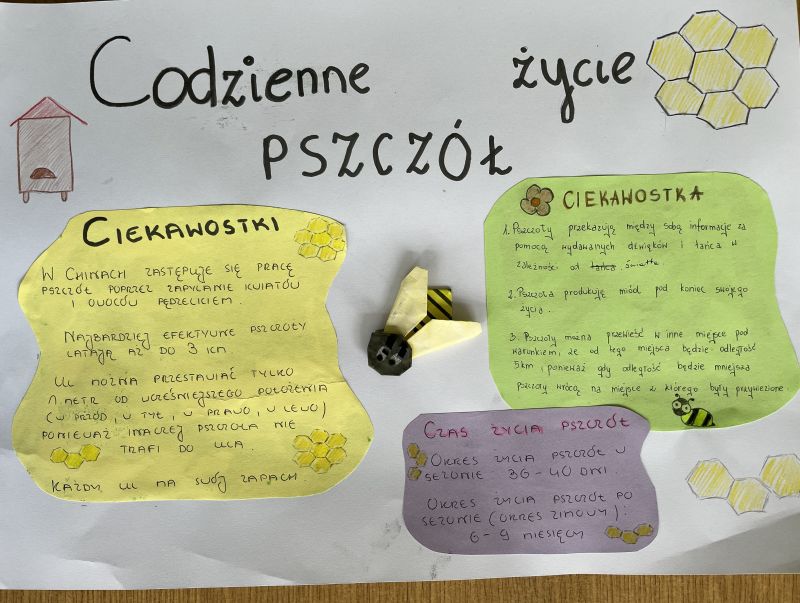 Codzienne życie
PSZCZÓŁ
CIEKAWOSTKI
W CHINACH ZASTĘPUJE SIĘ PRACĘ
PSZCZÓŁ POPRZEZ ZAPYLANIE KWIATÓW
I OWOCÓW PĘDZELKIEM.
NAJBARDZIEJ EFEKTYWNE PSZCZOŁY
LATAJĄ AŻ DO 3 KM
UL MOŻNA PRZESTAWIAĆ TYLKO
1 METR OD WCZEŚNIEJSZEGO POŁOŻENIA
(W PRZÓD, W TYŁ, W PRAWO, W LEWO)
PONIEWAŻ INACZEJ PSZCZOŁA NIE
TRAFI DO ULA.
KAŻDY UL MA SWÓJ ZAPACH
CIEKAWOSTKA
1. Pszczoły przekazują między sobą informacje za
pomocą wydawanych dźwięków i tańca w
zależności od tańca. światła.
2. Pszczoła produkuje miód pod koniec swojego
życia.
3. Pszczoły można przewieźć w inne miejsce pod
warunkiem, że od tego miejsca będzie odległość
5km, ponieważ gdy odległość będzie mniejsza
pszczoły wrócą na miejsce z którego były przywiezione.
CZAS ŻYCIA PSZCZÓŁ
OKRES ŻYCIA PSZCZÓŁ W
SEZONIE 36-40 DNI.
OKRES ŻYCIA PSZCZÓŁ PO
SEZONIE (OKRES ZIMOWY):
6-9 MIESIĘCY